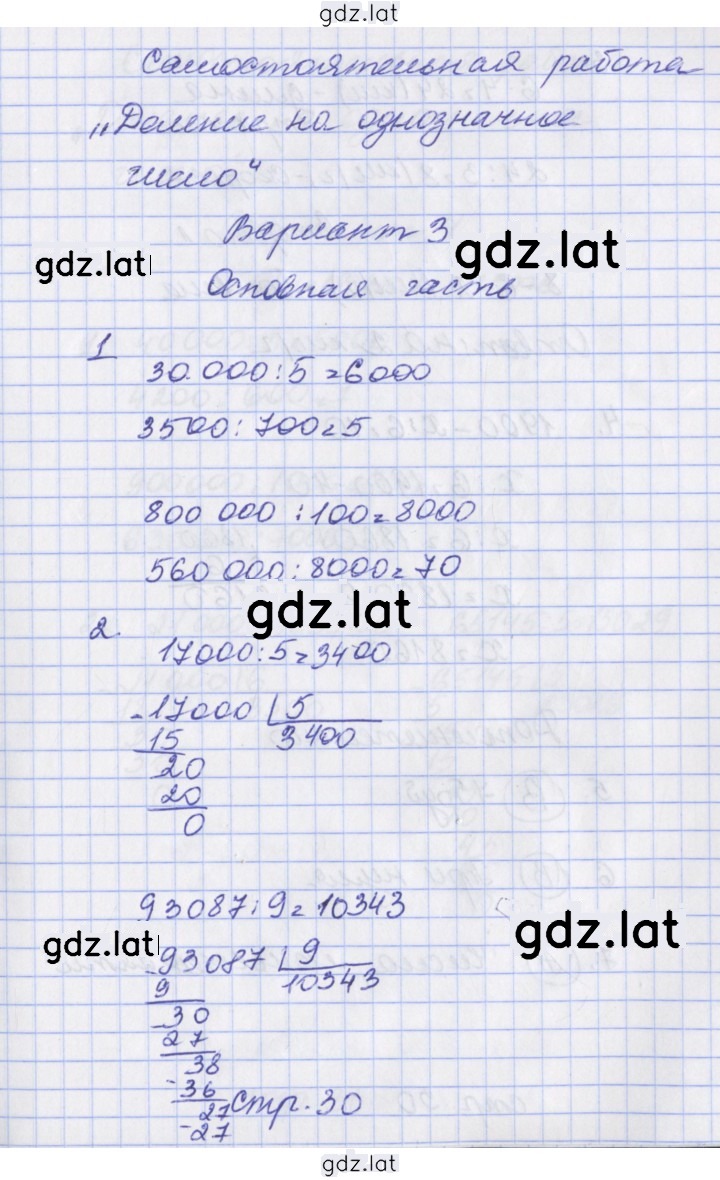 gdz.lat
Самостоятельная работа
„Деление на однозначное
число“
Вариант 3
gdz.lat
gdz.lat
Основная часть
1
30.000:5=6000
3500:700=5
800 000:100=8000
560 000:8000=70
gdz.lat
2.
17000:5=3400
-17000 | 5
15 3400
20
20
0
93087:9=10343
gdz.lat
gdz.lat
-93087 | 9
9 10343
30
27
38
-36
27 стр. 30
-27
gdz.lat